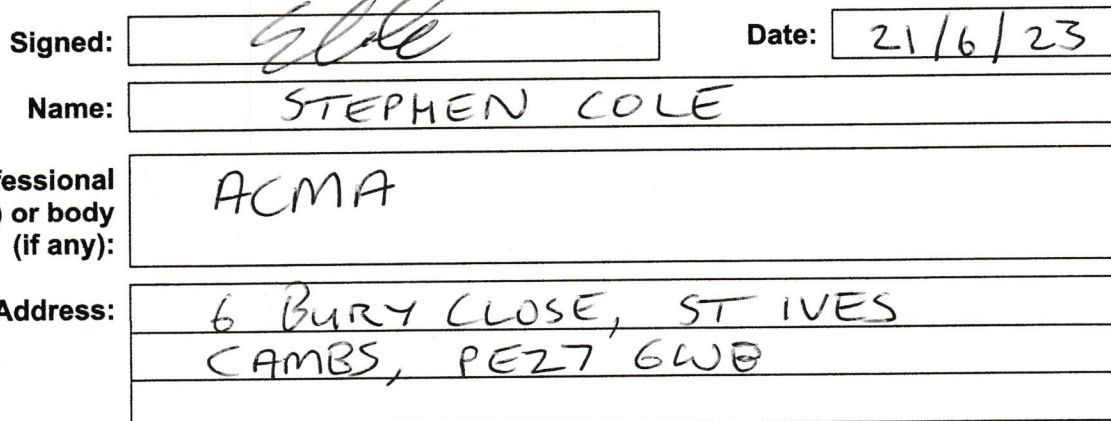 Signed:
Date: 21/6/23
Name: STEPHEN COLE
fessional
) or body
(if any):
ACMA
Address: 6 BURY CLOSE, ST IVES
CAMBS, PE27 6WB